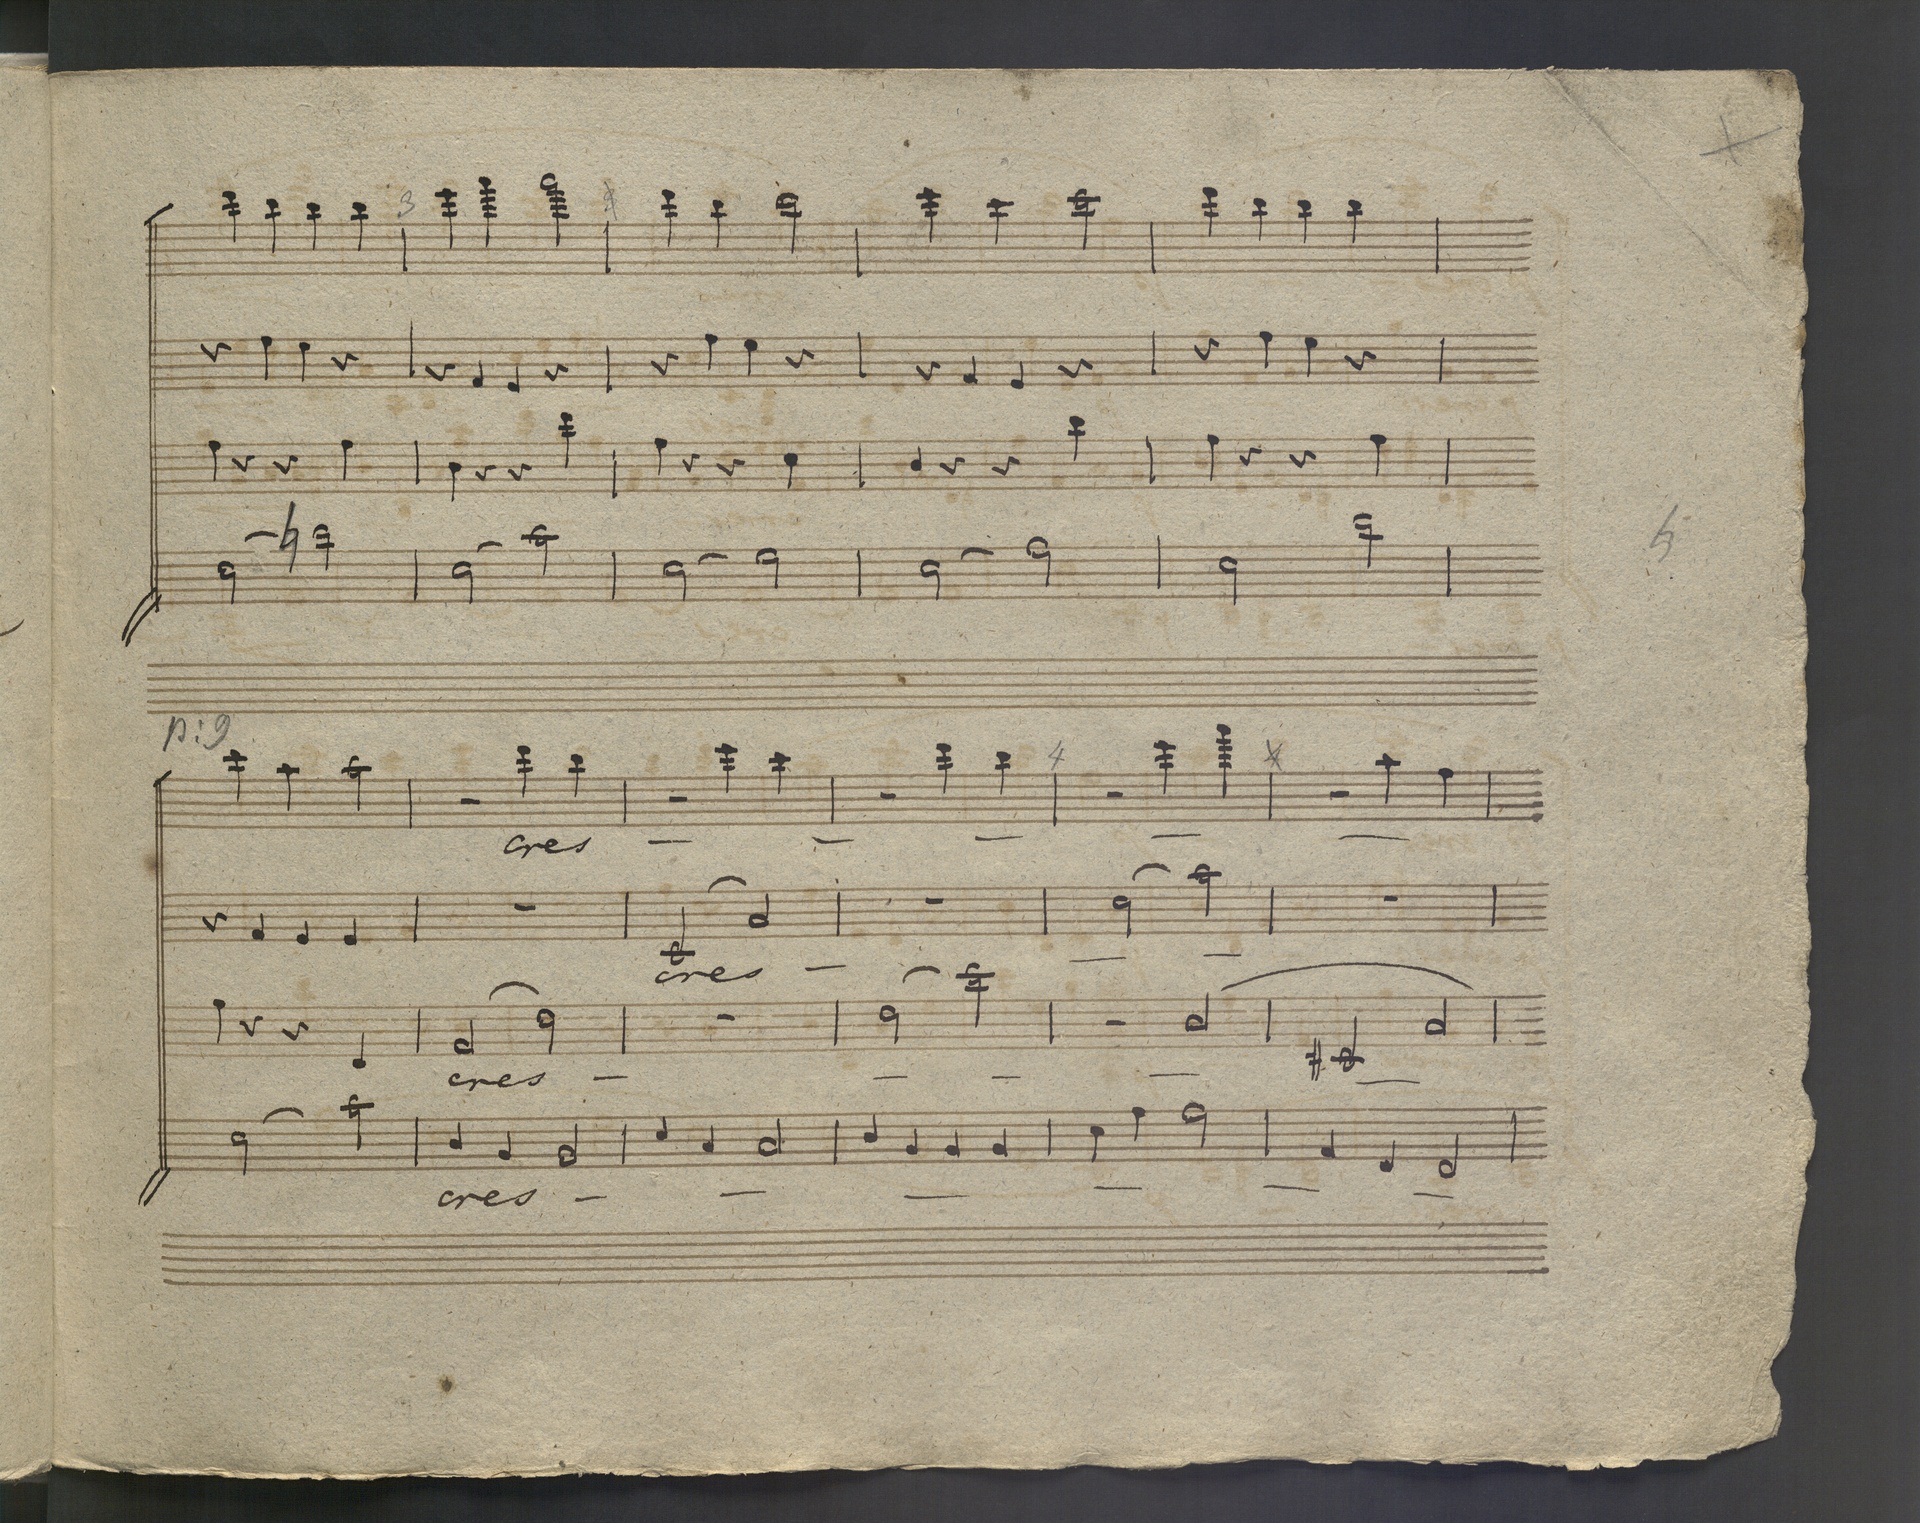 3
p: 9
4
cres
cres
cres
cres